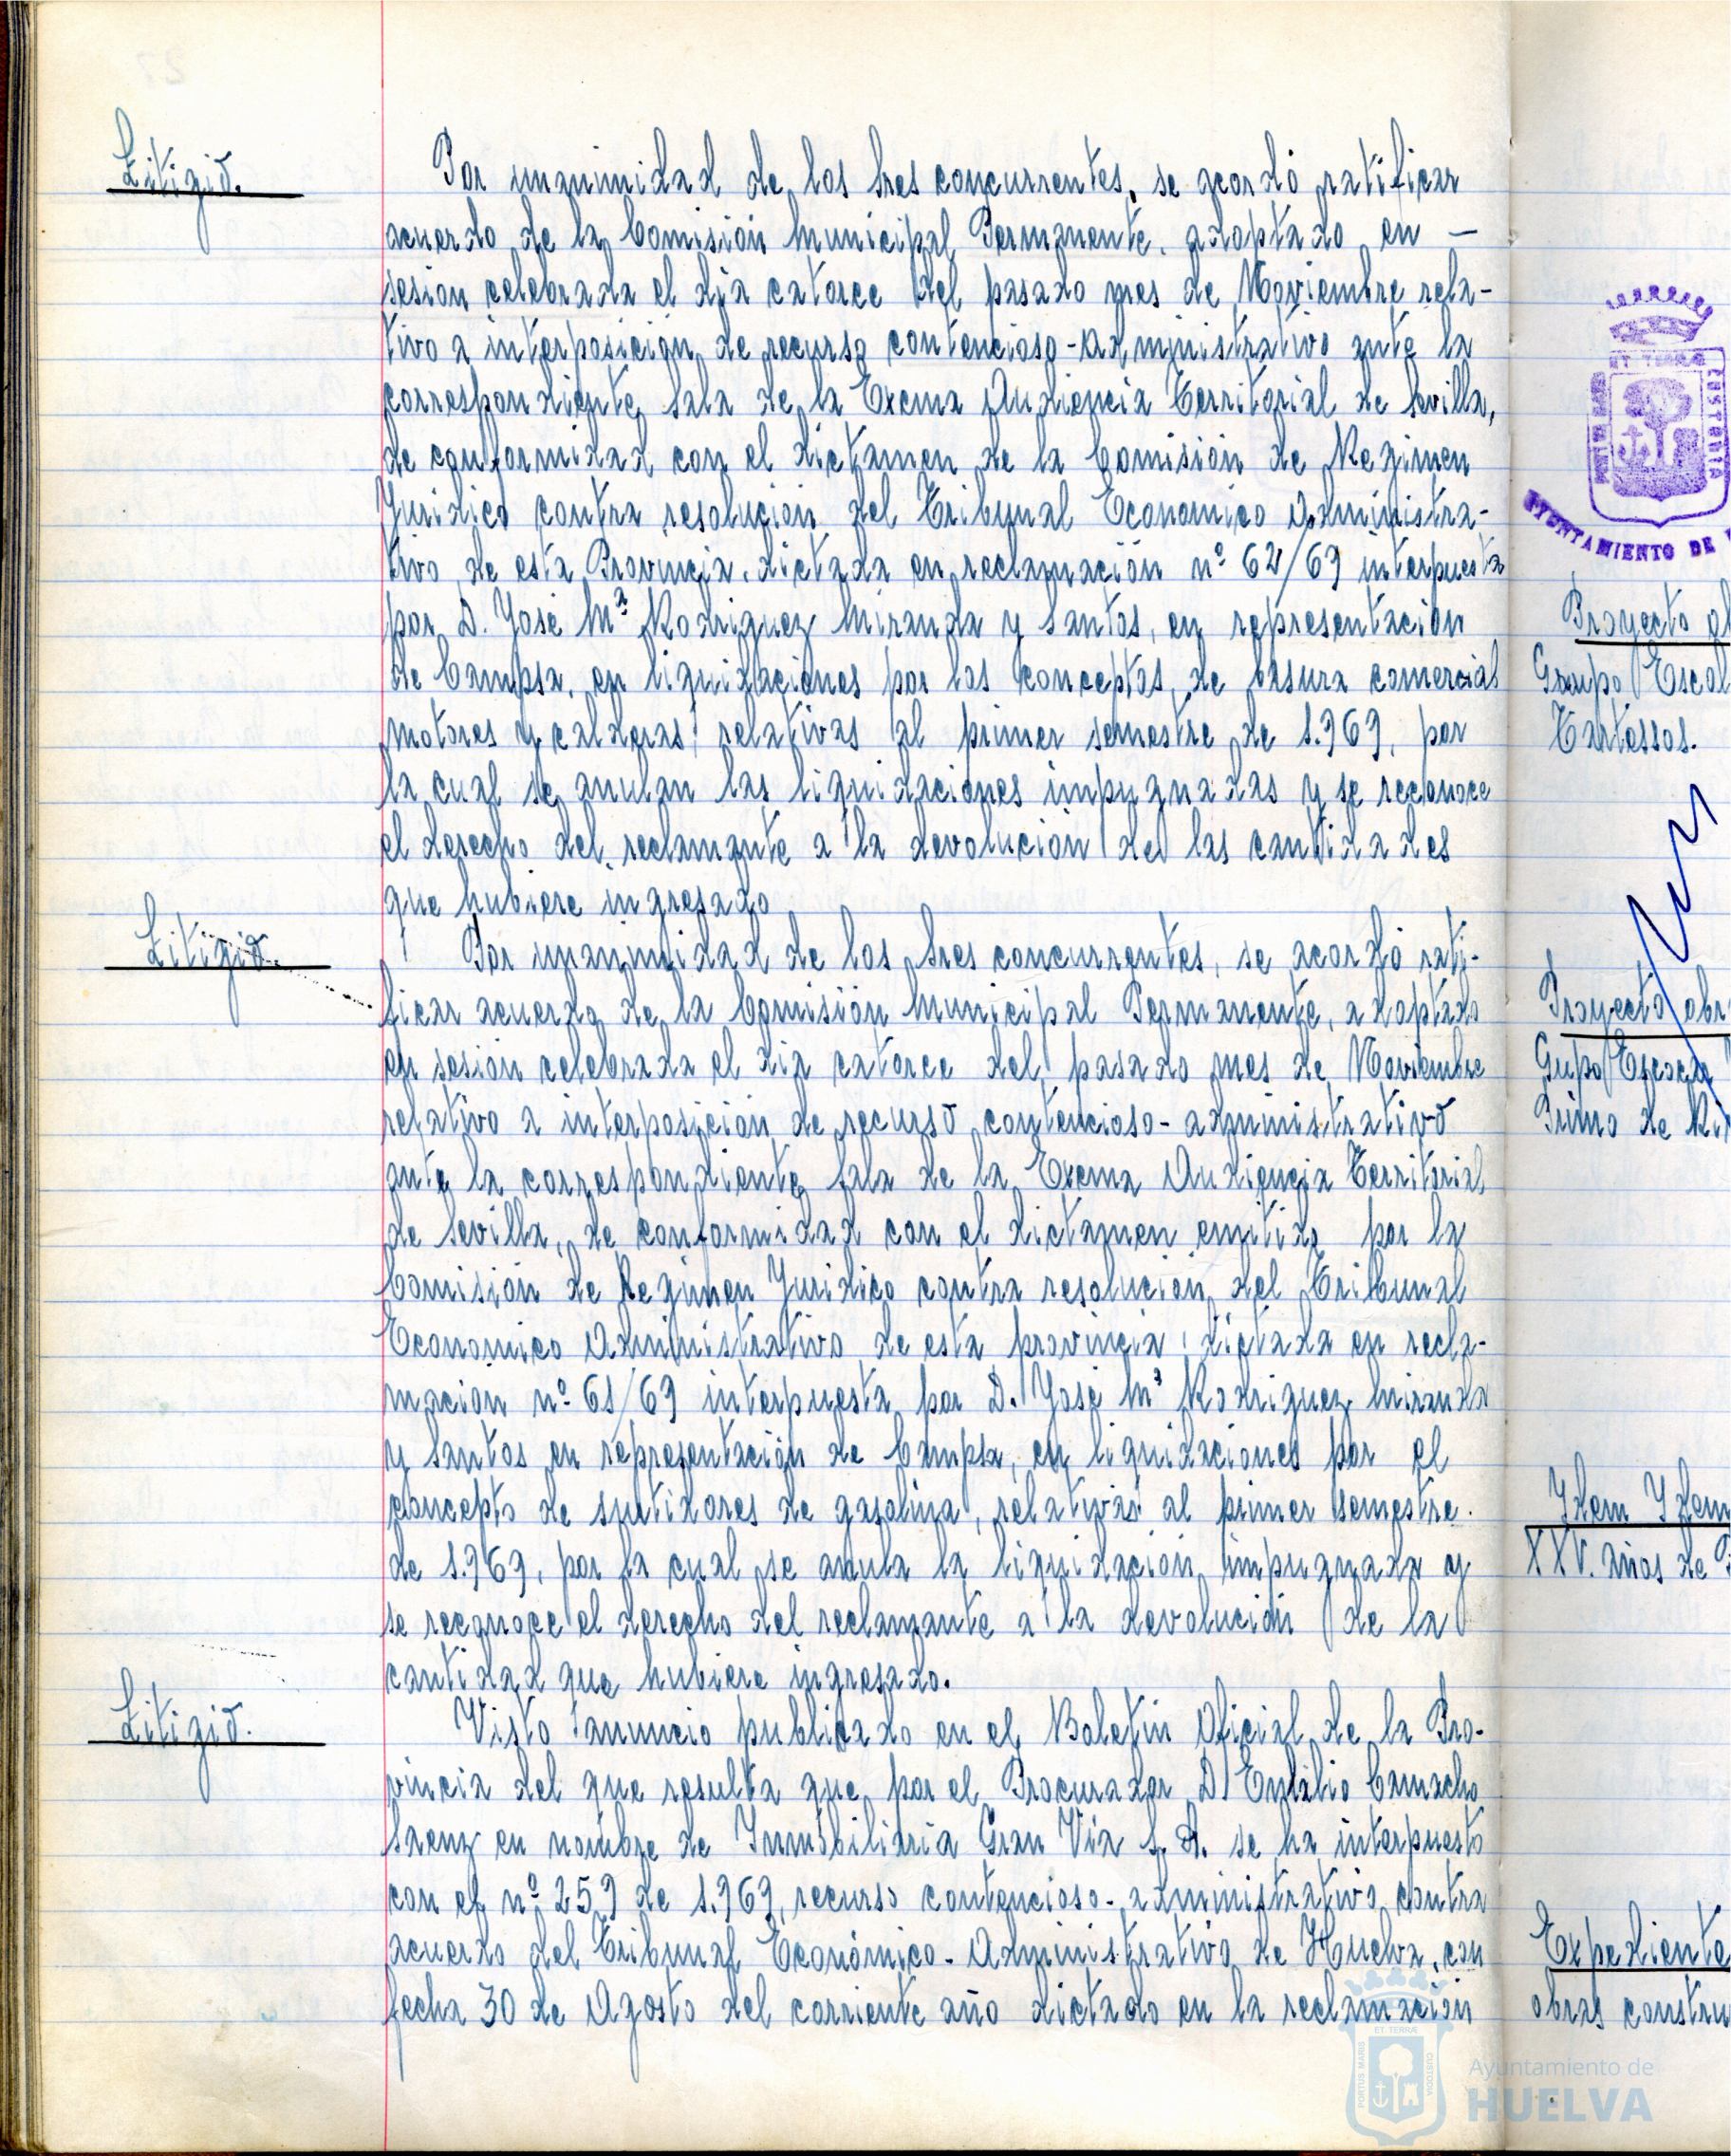 Litigio.
Por unanimidad de los Sres concurrentes, se acordó ratificar
acuerdo de la Comisión Municipal Permanente, adoptado en —
sesion celebrada el dia catorce del pasado mes de Noviembre rela-
tivo a interposición de recurso contencioso-administrativo ante la
correspondiente Sala de la Excma Audiencia Territorial de Sevilla,
de conformidad con el dictamen de la Comisión de Regimen
Juridico contra resolución del Tribunal Economico Administra-
tivo de esta Provincia, dictada en reclamación nº 62/69 interpuesta
por D. José Mª Rodriguez Miranda y Santos, en representación
de Campsa, en liquidaciones por los conceptos de basura comercial
motores y calderas, relativas al primer semestre de 1.969, por
la cual se anulan las liquidaciones impugnadas y se reconoce
el derecho del reclamante a la devolución de las cantidades
que hubiere ingresado
Litigio.
Por unanimidad de los Sres concurrentes, se acordó rati-
ficar acuerdo de la Comisión Municipal Permanente, adoptado
en sesión celebrada el dia catorce del pasado mes de Noviembre
relativo a interposición de recurso contencioso-administrativo
ante la correspondiente Sala de la Excma Audiencia Territorial
de Sevilla, de conformidad con el dictamen emitido por la
Comisión de Regimen Juridico contra resolución del Tribunal
Economico Administrativo de esta provincia, dictada en recla-
mación nº 61/69 interpuesta por D. José Mª Rodriguez Miranda
y Santos en representación de Campsa, en liquidaciones por el
concepto de surtidores de gasolina, relativas al primer semestre.
de 1.969, por la cual se anula la liquidación impugnada y
se reconoce el derecho del reclamante a la devolución de la
cantidad que hubiere ingresado.
Litigio.
Visto anuncio publicado en el Boletin Oficial de la Pro-
vincia del que resulta que por el Procurador D. Eulalio Camacho
Saenz en nombre de Inmobiliaria Gran Vía S.A. se ha interpuesto
con el nº 259 de 1.969, recurso contencioso-administrativo contra
acuerdo del Tribunal Económico-Administrativo de Huelva, con
fecha 30 de Agosto del corriente año dictado en la reclamación
PORTUS MARIS
ET TERRAE
CUSTODIA
AYUNTAMIENTO DE
Proyecto
Grupo Escol
Tartessos.
Proyecto obr
Gupo
Primo de Ri
Idem Idem
XXV. años de
Expediente
obras constru
PORTUS MARIS
ET TERRAE
CUSTODIA
Ayuntamiento de
HUELVA